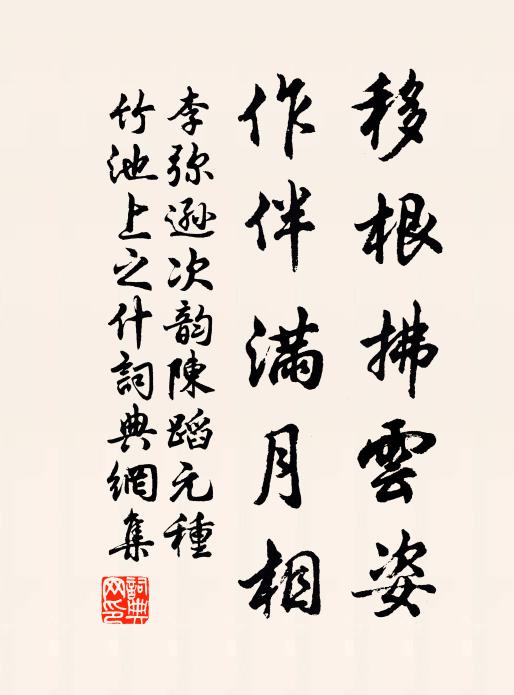 移根拂雲姿
作伴满月相
李弥遜次韵陳蹈元種
竹池上之什詞典網集
詞典
网印